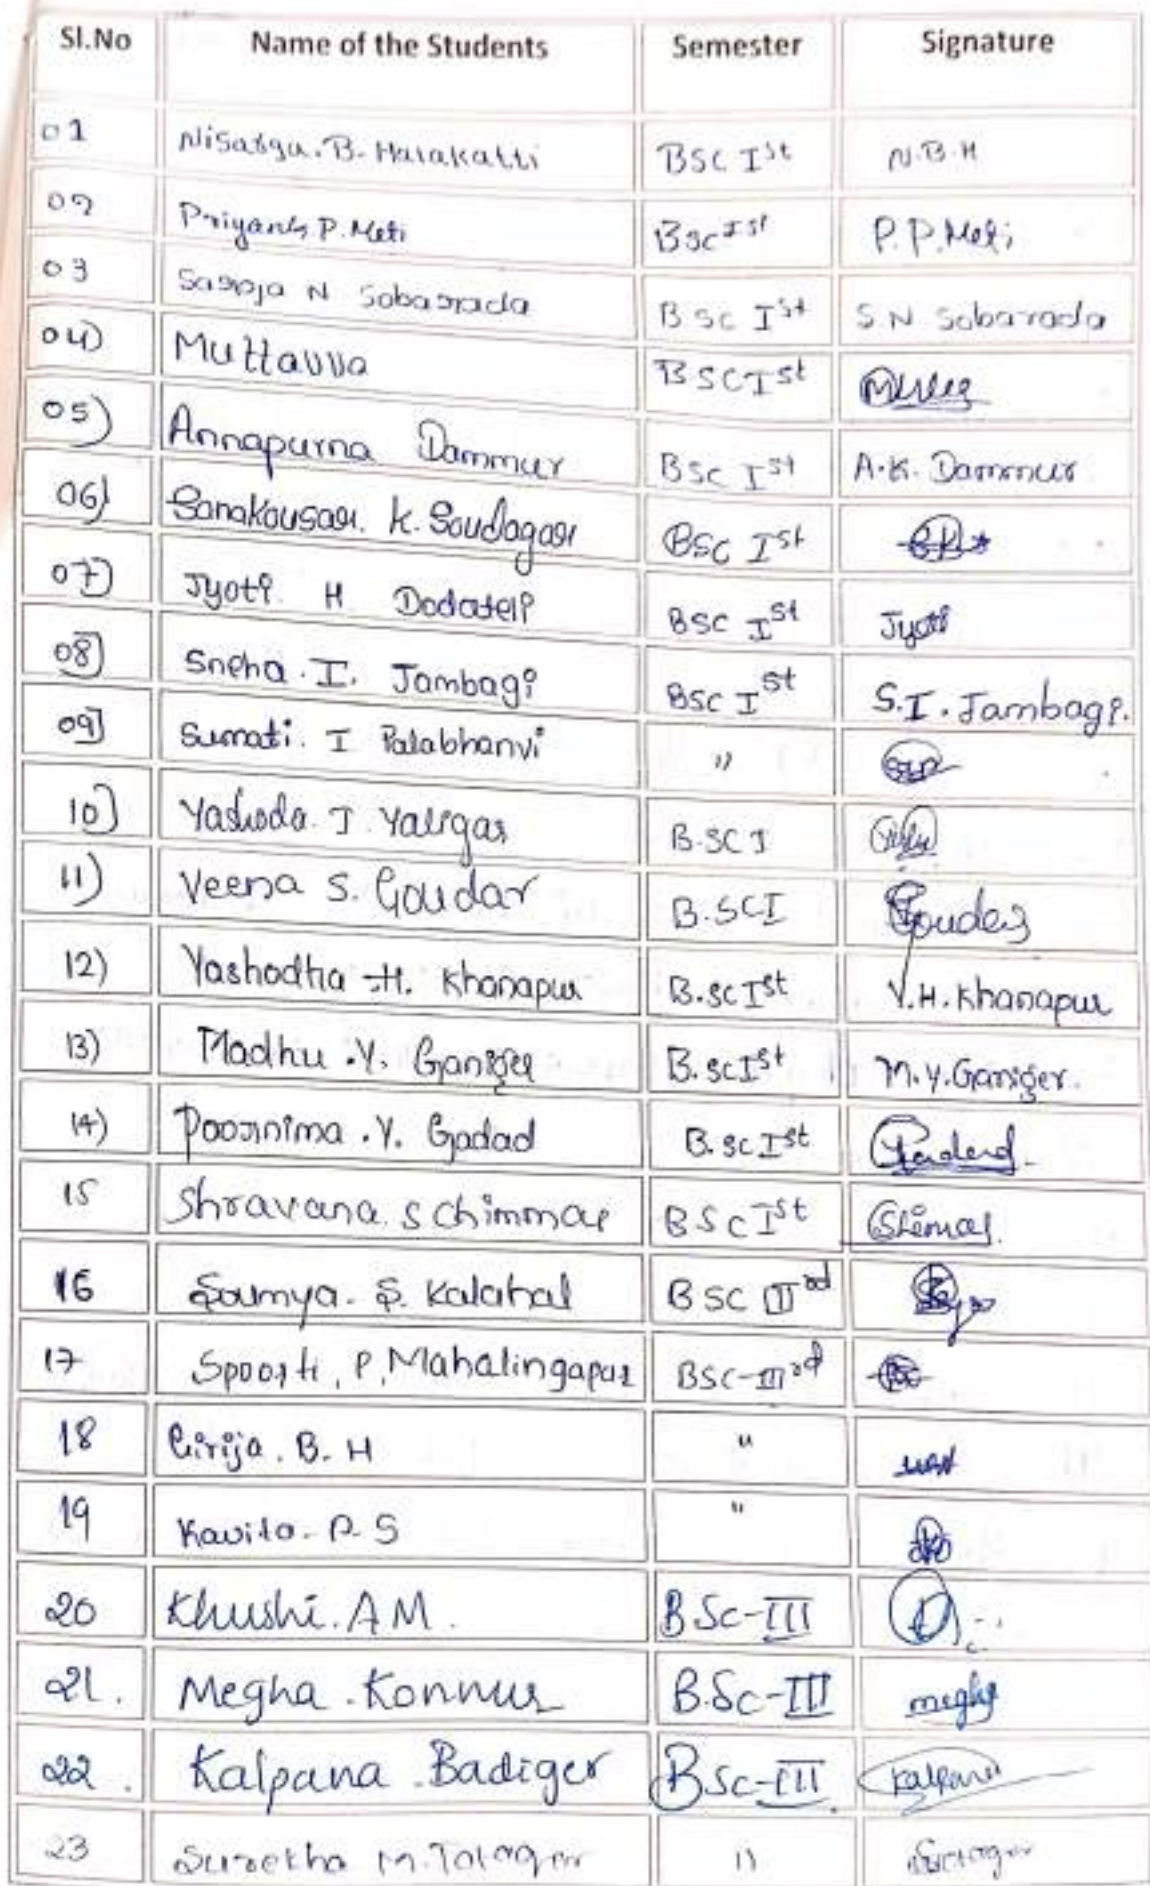 Sl.No Name of the Students Semester Signature
01 Nisarga. B. Halakatti BSC Ist N.B.H
02 Priyanka P. Meti BSC Ist P. P. Meti
03 Saroja N Sobarada B Sc Ist S N Sobarada
04) Muttavva BSC Ist
05) Annapurna Dammur BSc Ist A.K. Dammur
06) Sanakousar. K. Soudagar BSC Ist
07) Jyoti H Dodateli BSC Ist Jyoti
08) Sneha. I. Jambagi BSC Ist S.I. Jambagi.
09) Sumati. I Palabhanvi "
10) Yashoda. I. Yaligar B.SC I
11) Veena S. Goudar B.SCI Goudar
12) Yashodha .H. Khanapur B.SC Ist Y.H. Khanapur
13) Madhu .Y. Ganiger B.Sc Ist M.Y. Ganiger.
14) Poornima .Y. Gadad B.Sc Ist Gadad
15 Shravana. S Chimmal BSc Ist
16 Soumya. S. Kalahal BSC IIIrd
17 Spoorti. P. Mahalingapur BSC-IIIrd
18 Girija. B. H "
19 Kavita. P. S "
20 Khushi. A M. B.Sc-III
21. Megha .Konnur B.Sc-III megha
22. Kalpana .Badiger B.Sc-III Kalpana
23 Surekha M. Talagar "